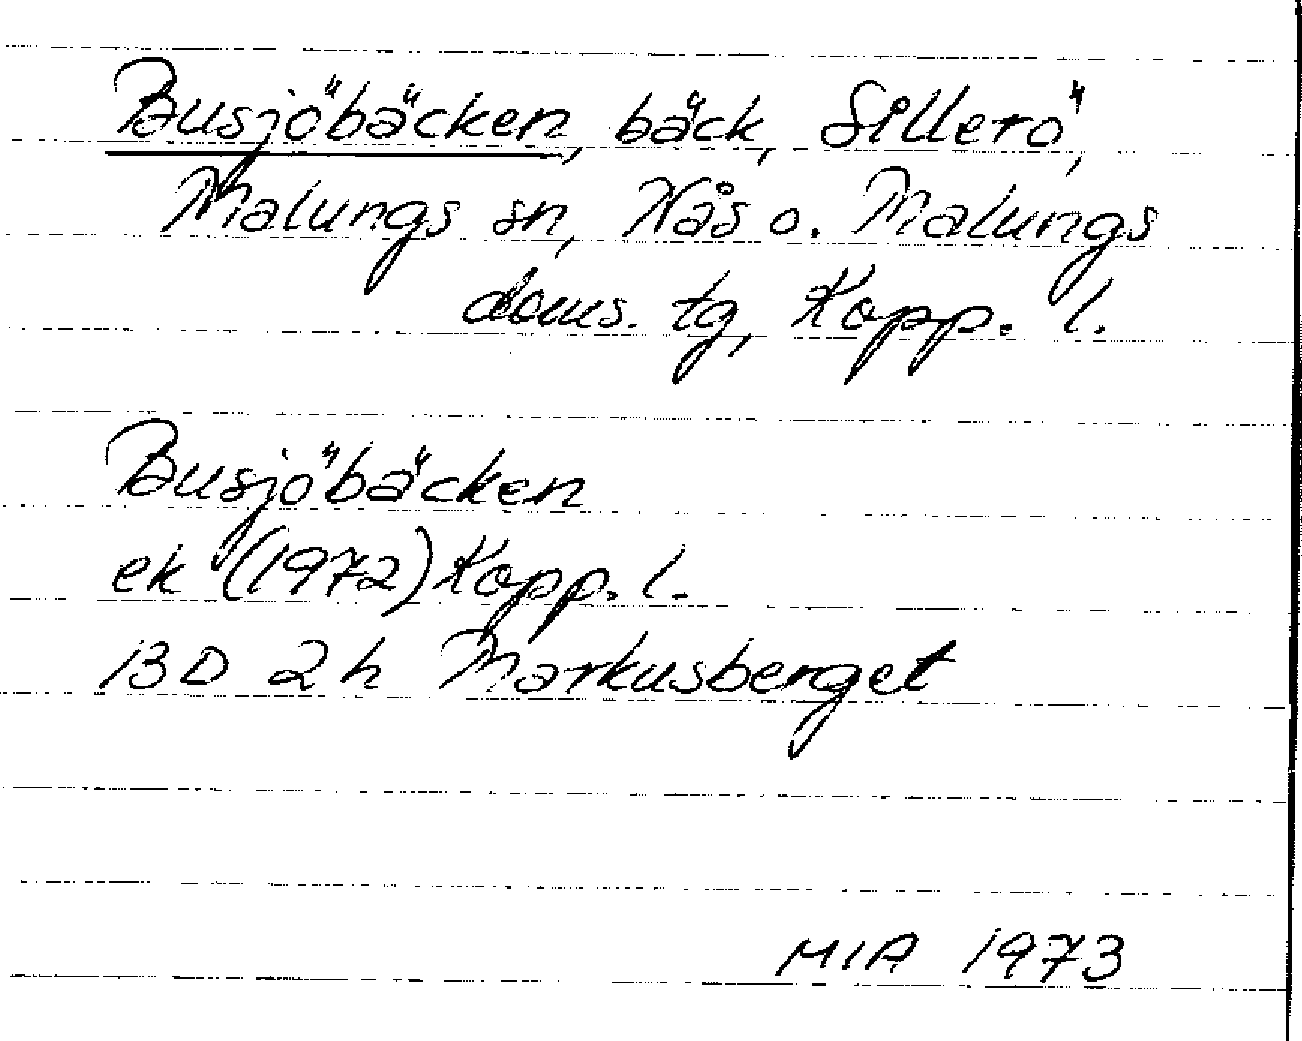 Busjöbäcken, bäck, Sillerö,
Malungs sn, Nås o. Malungs
doms. tg, Kopp. l.
Busjöbäcken
ek (1972) Kopp. l.
13D 2h Markusberget
MIA 1973